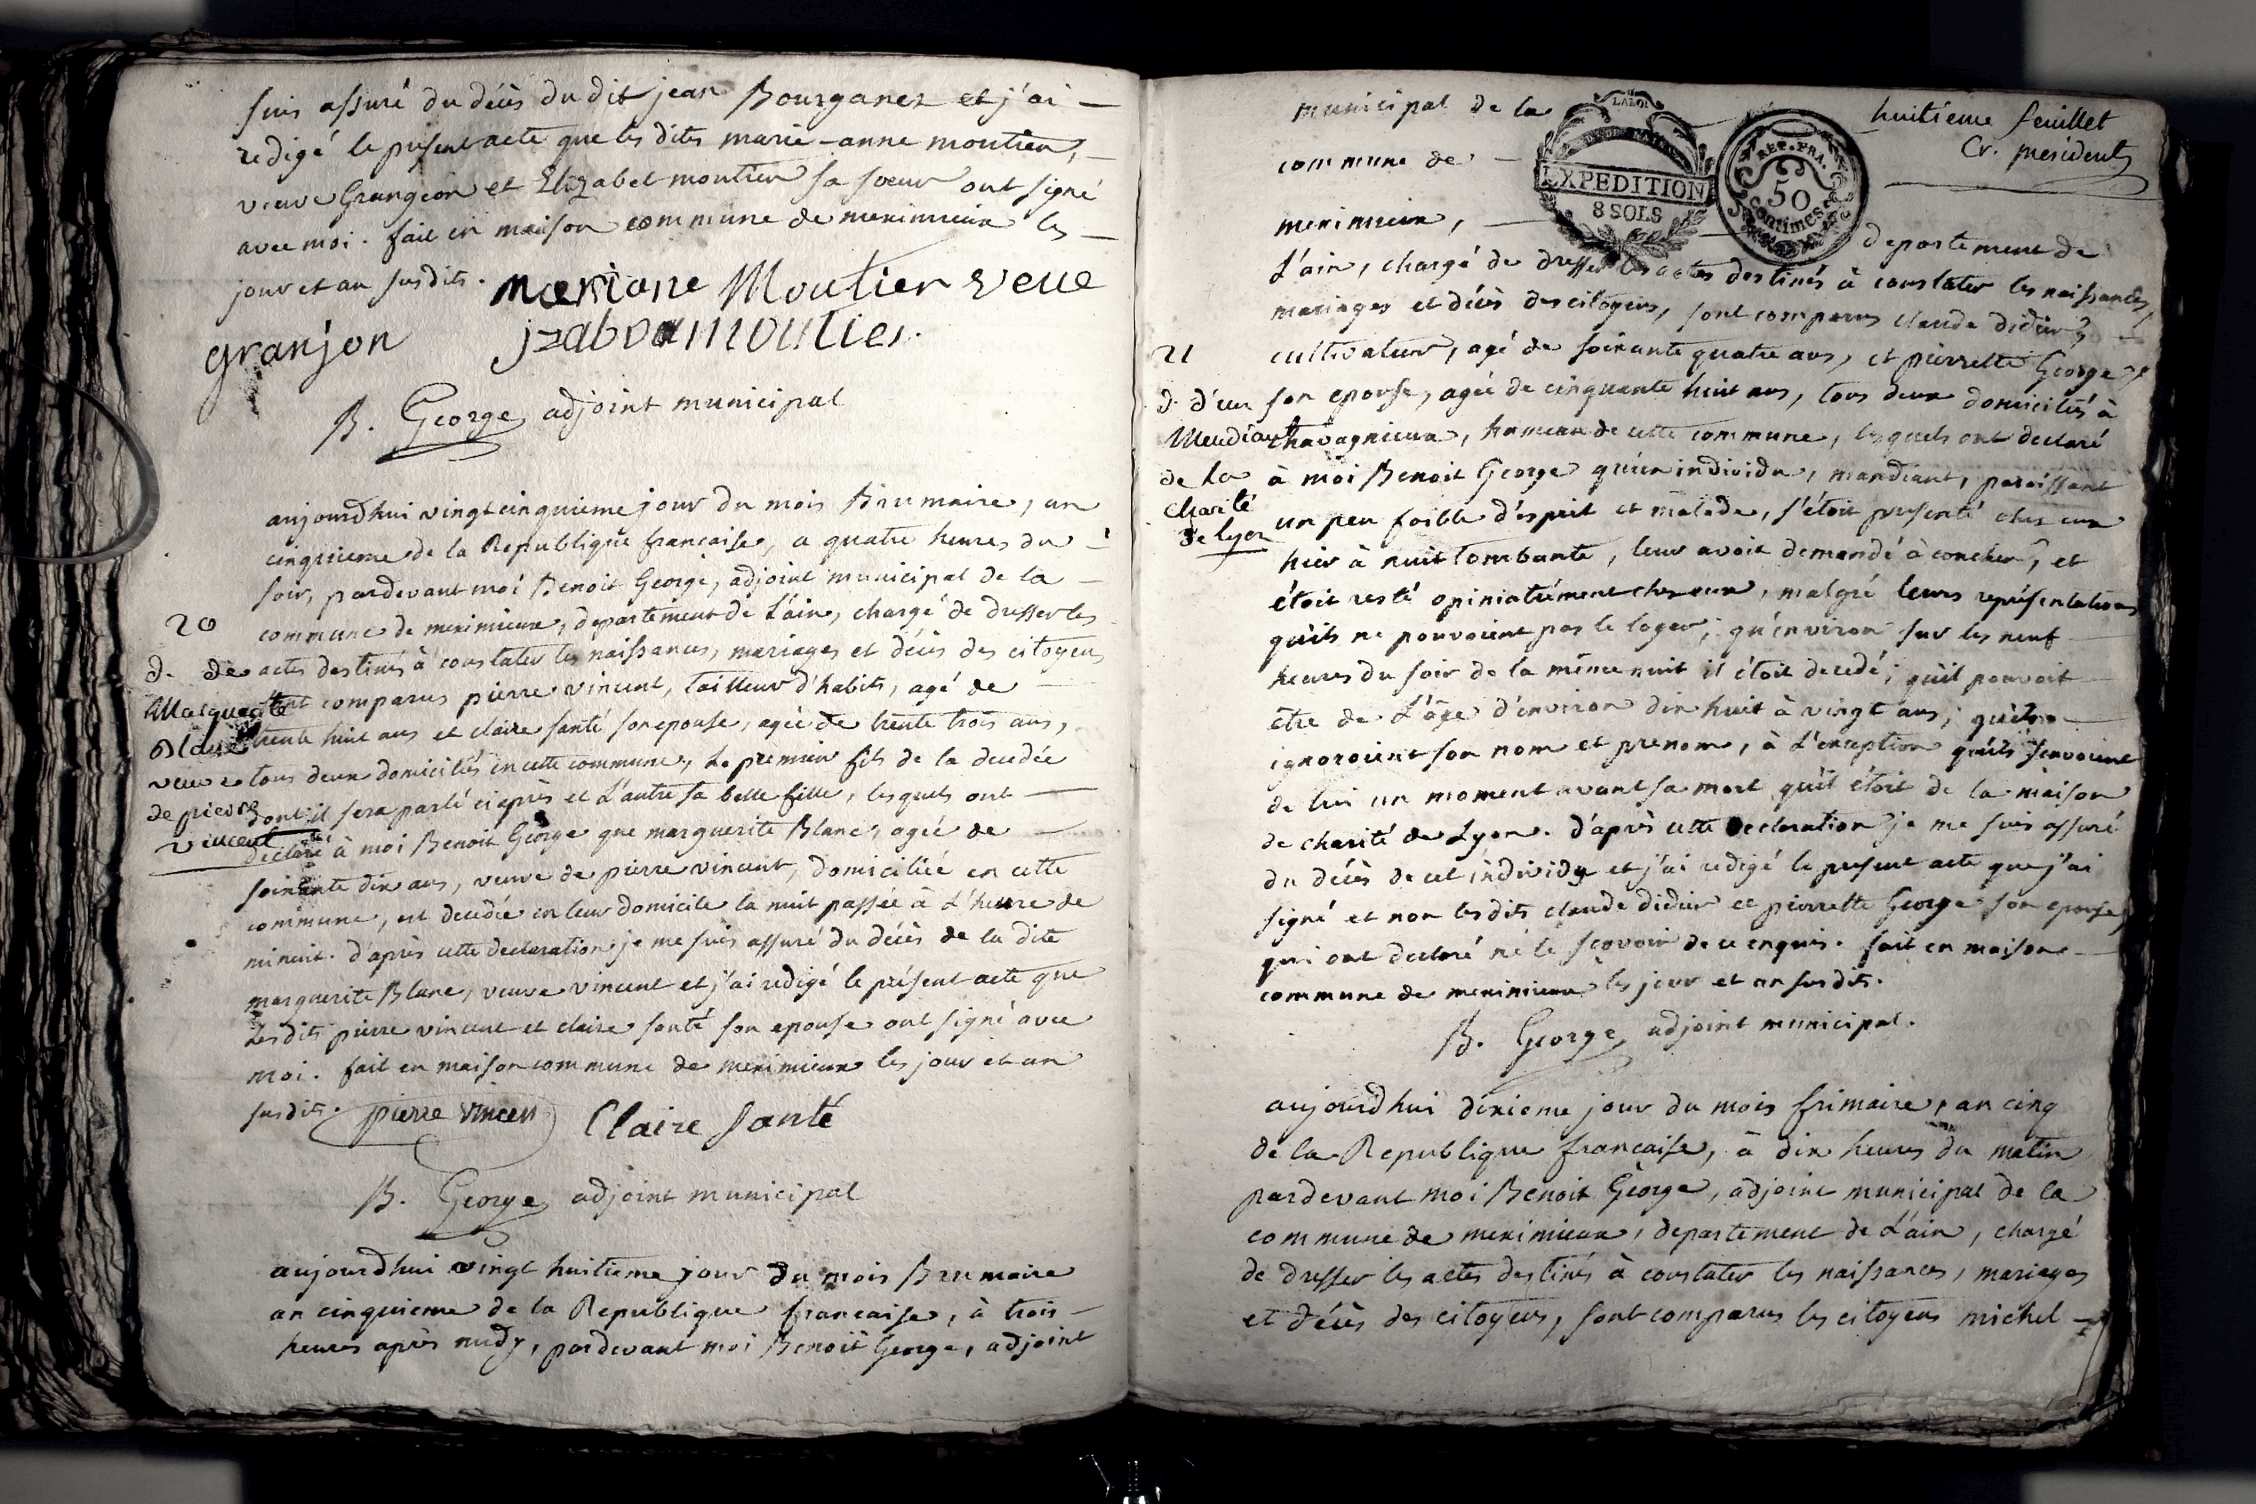 suis assuré du décès du dit jean Bourganer et j'ai
redigé le présent acte que les dites marie-anne moutier,
veuve Grangeon et Elizabet moutier sa soeur ont signé
avec moi. fait en maison commune de meximieux les
jour et an susdits. mariane Moutier veue
granjon
B. George, adjoint municipal
aujourdhui vingt cinquieme jour du mois Brumaire, an
cinquieme de la Republique francaise, a quatre heures du
soir, pardevant moi Benoit George, adjoint municipal de la
20 commune de meximieux, departement de L'ain, chargé de dresser les
d. de actes destinés à constater les naissances, mariages et décès des citoyens
Marguerite sont comparus pierre vincent, tailleur d'habits, agé de
Blanc trente huit ans et claire santé son epouse, agée de trente trois ans,
veuve tous deux domiciliés en cette commune, Le premier fils de la decedée
de pierre dont il sera parlé ciaprès et L'autre sa belle fille, lesquels ont
vincent declaré à moi Benoit George que marguerite Blanc, agée de
soixante dix ans, veuve de pierre vincent, domiciliée en cette
commune, est decedée en leur domicile la nuit passée à L'heure de
minuit. d'après cette declaration je me suis assuré du décès de la dite
marguerite Blanc, veuve vincent et j'ai redigé le présent acte que
Lesdits pierre vincent et claire santé son epouse ont signé avec
moi. fait en maison commune de meximieux les jour et an
susdits. pierre vincen Claire Santé
B. George, adjoint municipal
aujourdhui vingt huitieme jour du mois Brumaire
an cinquieme de la Republique francaise, à trois
heures après midy, pardevant moi Benoit George, adjoint
huitieme feuillet
municipal de la
LA LOI
REP. FRA.
50
centimes
EXPEDITION
8 SOLS
commune de
meximieux, departement de
L'ain, chargé de dresser les actes destinés à constater les naissances,
mariages et décès des citoyens, sont comparus claude didier,
21 cultivateur, agé de soixante quatre ans, et pierrette George
d. d'un son epouse, agée de cinquante huit ans, tous deux domiciliés à
Mendiant chavagnieux, hameau de cette commune, lesquels ont declaré
de la à moi Benoit George qu'un individu, mandiant, paroissant
charité un peu foible d'esprit et malade, s'étoit presenté chez eux
de lyon hier à nuit tombante, leur avoit demandé à coucher, et
étoit resté opiniatrément chez eux, malgré leurs représentations
qu'ils ne pouvoient pas le loger; qu'environ sur les neuf
heures du soir de la même nuit il étoit decedé; qu'il pouvoit
être de L'âge d'environ dix huit à vingt ans; qu'ils
ignoroient son nom et prenom, à L'exception qu'ils scavoient
de lui un moment avant sa mort qu'il étoit de la maison
de charité de Lyon. d'après cette declaration je me suis assuré
du décès de cet individu et j'ai redigé le present acte que j'ai
signé et non lesdits claude didier et pierrette George son epouse,
qui ont declaré ne le scavoir de ce enquis. fait en maison
commune de meximieux les jour et an susdits.
B. George, adjoint municipal.
aujourdhui dixieme jour du mois frimaire, an cinq
de la Republique francaise, à dix heures du matin
pardevant moi Benoit George, adjoint municipal de la
commune de meximieux, departement de L'ain, chargé
de dresser les actes destinés à constater les naissances, mariages
et décès des citoyens, sont comparus les citoyens michel